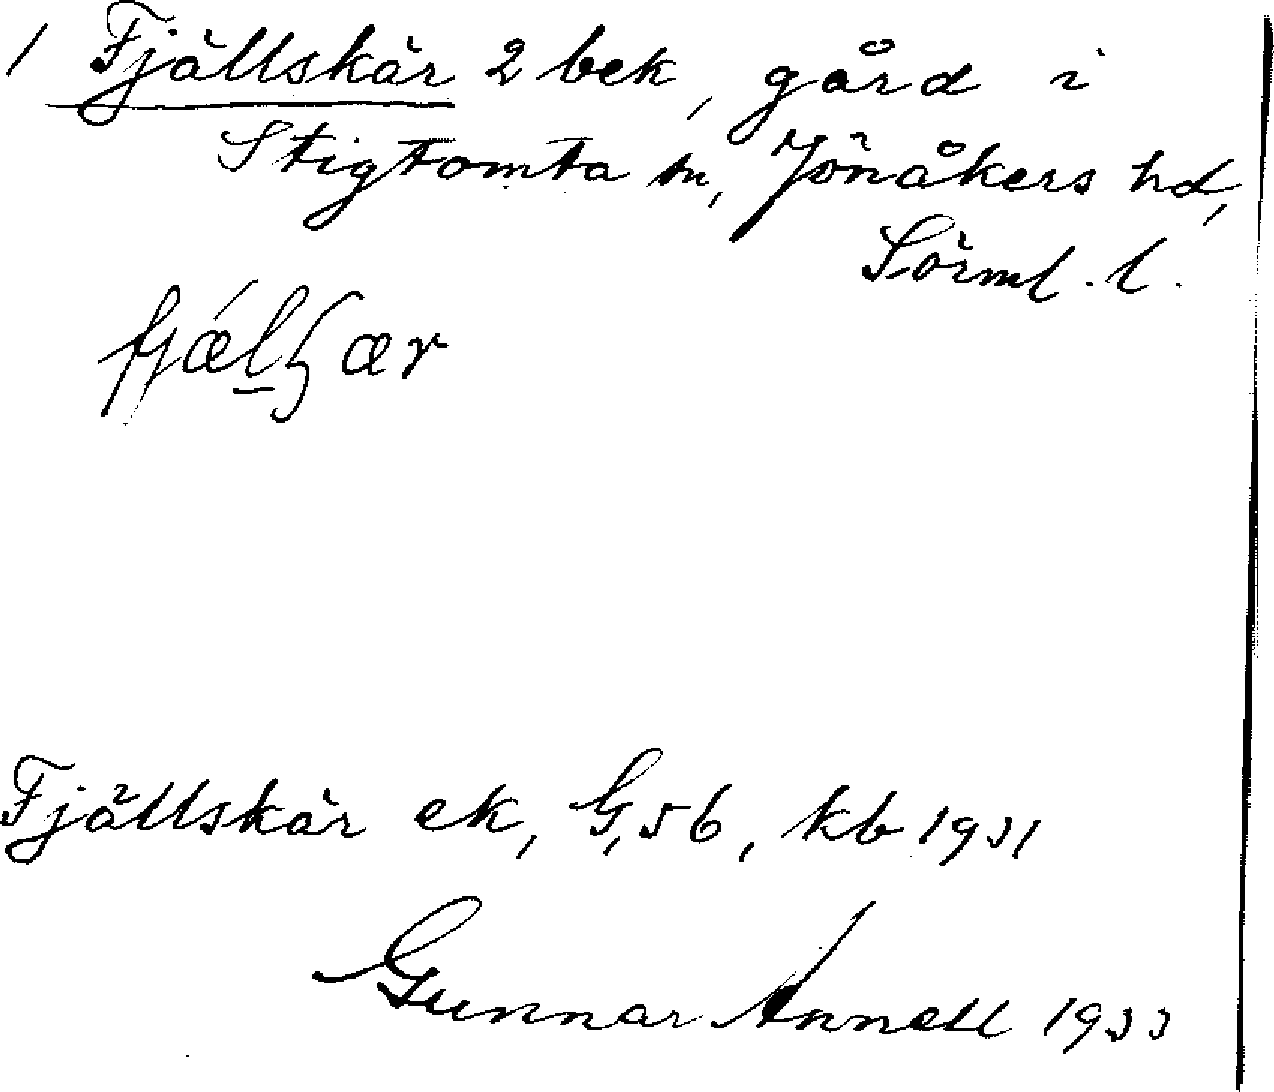 1 Fjällskär 2 bek, gård i
Stigtomta sn, Jönåkers hd,
Sörml. l.
fjæ̀lʂær
Fjällskär ek, G, 56, kb 1931
Gunnar Annell 1933